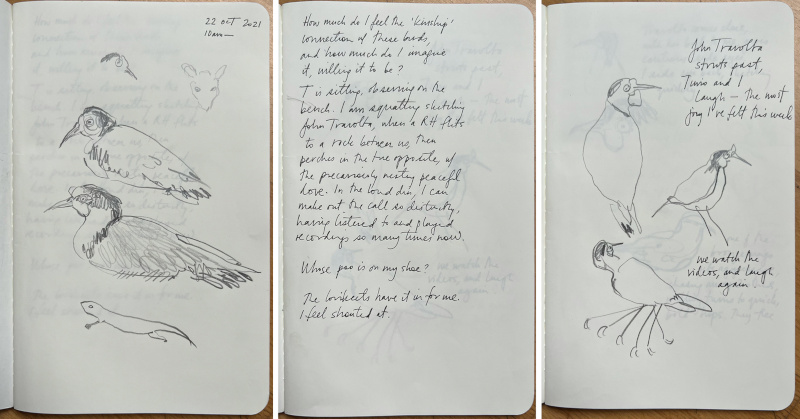 22 OCT 2021
10am—
How much do I feel the 'kinship'
connection of these birds,
and how much do I imagine
it, willing it to be?
T is sitting, observing on the
bench. I am squatting sketching
John Travolta, when a RH flits
to a rock between us, then
perches in the tree opposite, w/
the precariously nesting peaceful
dove. In the loud din, I can
make out the call so distinctly,
having listened to and played
recordings so many times now.
Whose poo is on my shoe?
The lorikeets have it in for me.
I feel shouted at.
John Travolta
struts past,
and I
laugh — the most
joy I've felt this week
we watch the
videos, and laugh
again.